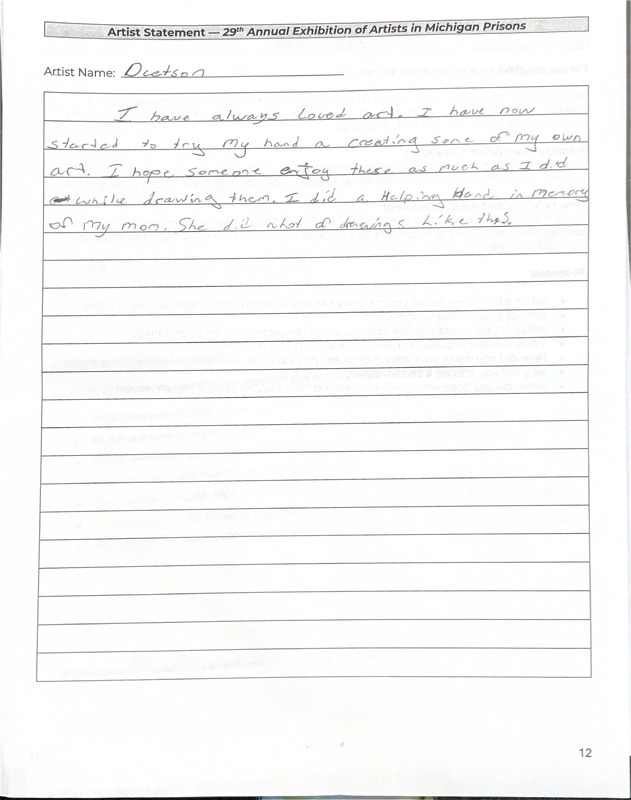 Artist Statement — 29th Annual Exhibition of Artists in Michigan Prisons
Artist Name:
I have always loved art. I have now
started to try my hand a creating some of my own
art. I hope someone enjoy these as much as I did
while drawing them. I did a Helping Hand in memory
of my mom. She did alot of drawings Like this.
12